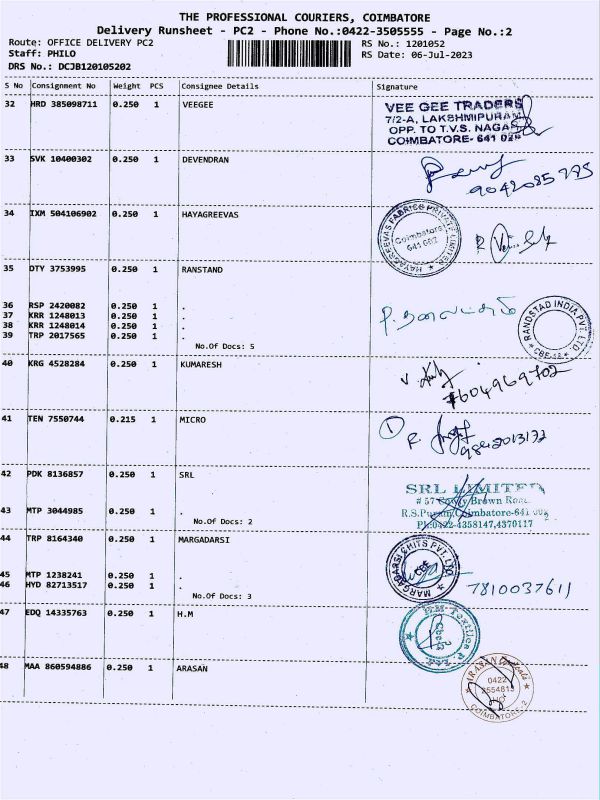 THE PROFESSIONAL COURIERS, COIMBATORE
Delivery Runsheet - PC2 - Phone No.:0422-3505555 - Page No.:2
Route: OFFICE DELIVERY PC2 RS No.: 1201052
Staff: PHILO RS Date: 06-Jul-2023
DRS No.: DCJB120105202
S No Consignment No Weight PCS Consignee Details Signature
32 HRD 385098711 0.250 1 VEEGEE
VEE GEE TRADERS
7/2-A, LAKSHMIPURAM
OPP. TO T.V.S. NAGAR
COIMBATORE- 641 025
33 SVK 10400302 0.250 1 DEVENDRAN
9042085795
34 IXM 504106902 0.250 1 HAYAGREEVAS
HAYAGREEVAS FABRICS PRIVATE LIMITED
Coimbatore
641 002
35 OTY 3753995 0.250 1 RANSTAND
36 RSP 2420082 0.250 1 .
37 KRR 1248013 0.250 1 .
38 KRR 1248014 0.250 1 .
39 TRP 2017565 0.250 1 .
No.Of Docs: 5
RANDSTAD INDIA PVT. LTD.
CBE
40 KRG 4528284 0.250 1 KUMARESH
7604969702
41 TEN 7550744 0.215 1 MICRO
42 PDK 8136857 0.250 1 SRL
SRL LIMITED
# 57 Cowly Brown Road
R.S.Puram, Coimbatore-641 002
Ph:0422-4358147,4370117
43 MTP 3044985 0.250 1 .
No.Of Docs: 2
44 TRP 8164340 0.250 1 MARGADARSI
MARGADARSI CHITS PVT. LTD.
45 MTP 1238241 0.250 1 .
46 HYD 82713517 0.250 1 .
No.Of Docs: 3
7810037611
47 EDQ 14335763 0.250 1 H.M
H.M Textiles
48 MAA 860594886 0.250 1 ARASAN
ARASAN
0422
2554815
HO
COIMBATORE-2